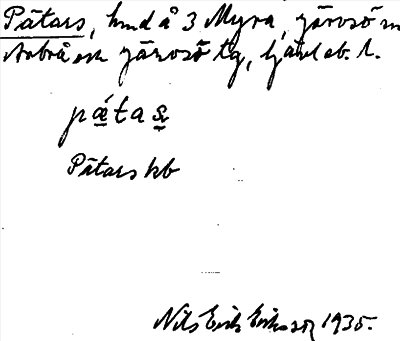 Pätars, hmd å 3 Myra, Järvsö sn
Arbrå och Järvsö tg, Gävleb. l.
pǽtaʂ
Pätars kb
Nils Erik Eriksson 1935.